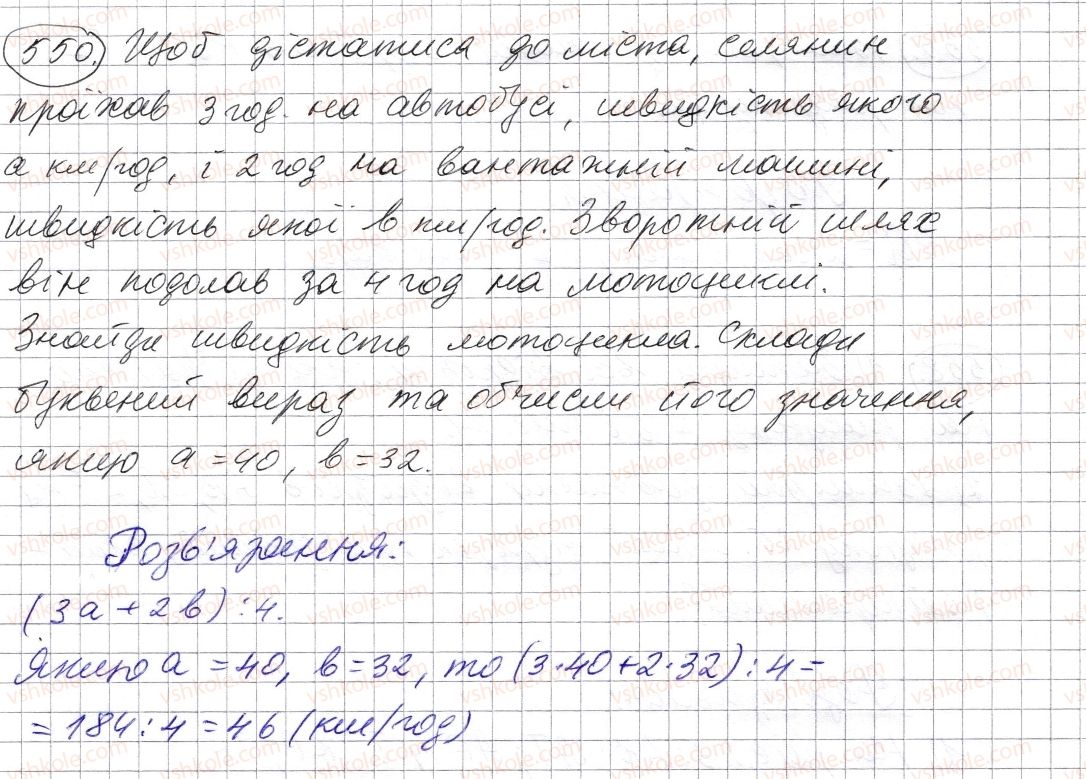 550. Щоб дістатися до міста, селянин
проїхав 3 год. на автобусі, швидкість якого
а км/год, і 2 год на вантажній машині,
швидкість якої в км/год. Зворотній шлях
він подолав за 4 год на мотоциклі.
Знайди швидкість мотоцикла. Склади
буквений вираз та обчисли його значення,
якщо а = 40, в = 32.
Розв'язання:
(3а + 2в) : 4.
Якщо а = 40, в = 32, то (3·40+2·32) : 4 =
= 184 : 4 = 46 (км/год)